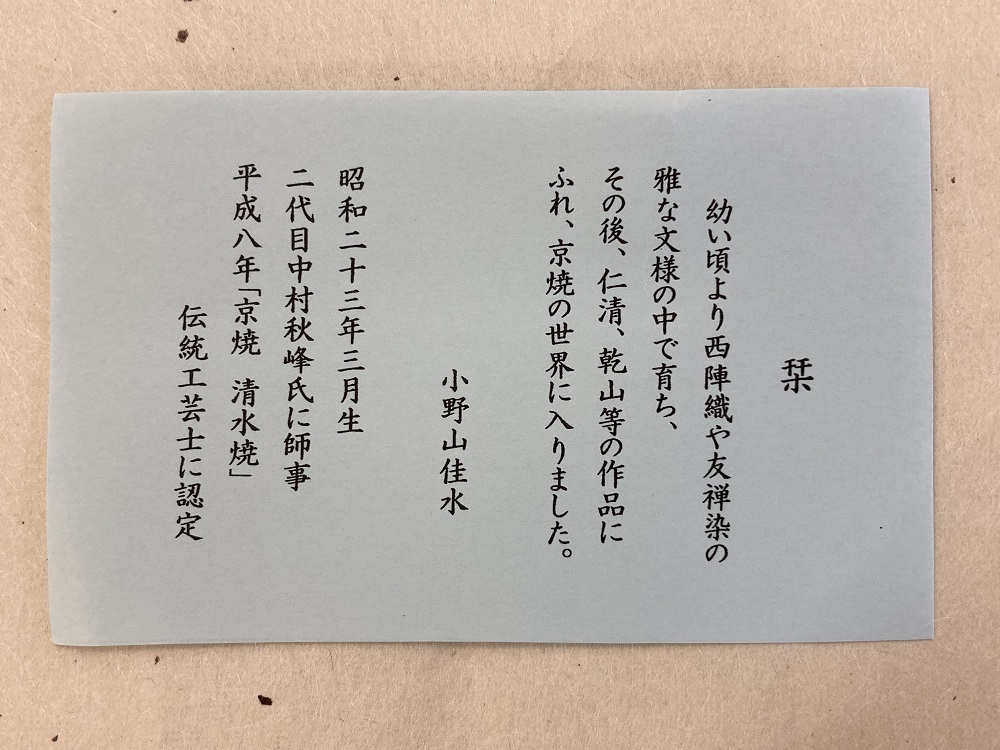 栞
幼い頃より西陣織や友禅染の
雅な文様の中で育ち、
その後、仁清、乾山等の作品に
ふれ、京焼の世界に入りました。
小野山佳水
昭和二十三年三月生
二代目中村秋峰氏に師事
平成八年「京焼　清水焼」
伝統工芸士に認定